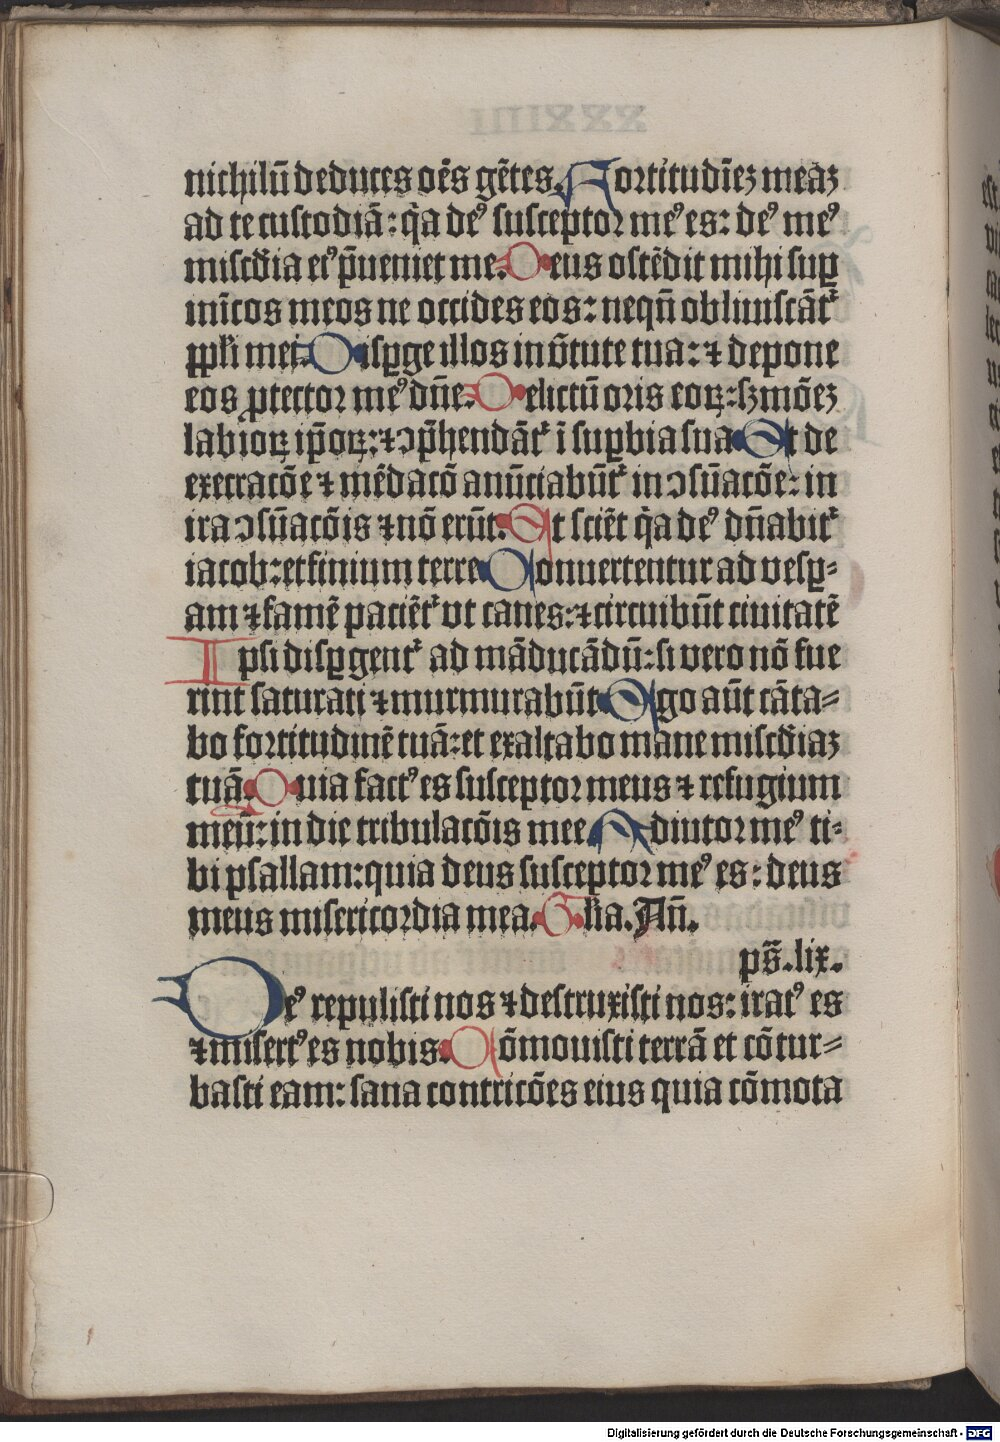 nichilū deduces oēs gētes. Fortitudīeꝫ meaꝫ
ad te custodiā: q̄a deꝰ susceptor meꝰ es: deꝰ meꝰ
miscd̄ia eiꝰ p̄ueniet me. Deus ostēdit mihi suꝑ
inīcos meos ne occides eos: neqn̄ obliuiscāt᷑
pp̄li mei. Disꝑge illos in v̄tute tua: ⁊ depone
eos ꝓtector meꝰ dn̄e. Delictū oris eoꝝ: s̄mōeꝫ
labioꝝ ip̄oꝝ: ⁊ ↄp̄hendāt᷑ ī suꝑbia sua Et de
execracōe ⁊ mēdacō anūciabūt᷑ in ↄsūacōe: in
ira ↄsūacōis ⁊ nō erūt. Et sciēt q̄a deꝰ dn̄abit᷑
iacob: et finium terre Conuertentur ad vesꝑ⸗
am ⁊ famē paciēt᷑ vt canes: ⁊ circuibūt ciuitatē
Ipsi disꝑgent᷑ ad māducādū: si vero nō fue
rint saturati ⁊ murmurabūt Ego aūt cāta⸗
bo fortitudinē tuā: et exaltabo mane miscd̄iaꝫ
tuā. Quia factꝰ es susceptor meus ⁊ refugium
meū: in die tribulacōis mee. Adiutor meꝰ ti⸗
bi psallam: quia deus susceptor meꝰ es: deus
meus misericordia mea. Gl̄ia. Añ.
ps̄. lix.
Deꝰ repulisti nos ⁊ destruxisti nos: iratꝰ es
⁊ misertꝰ es nobis. Cōmouisti terrā et cōtur⸗
basti eam: sana contricōes eius quia cōmota
Digitalisierung gefördert durch die Deutsche Forschungsgemeinschaft - DFG